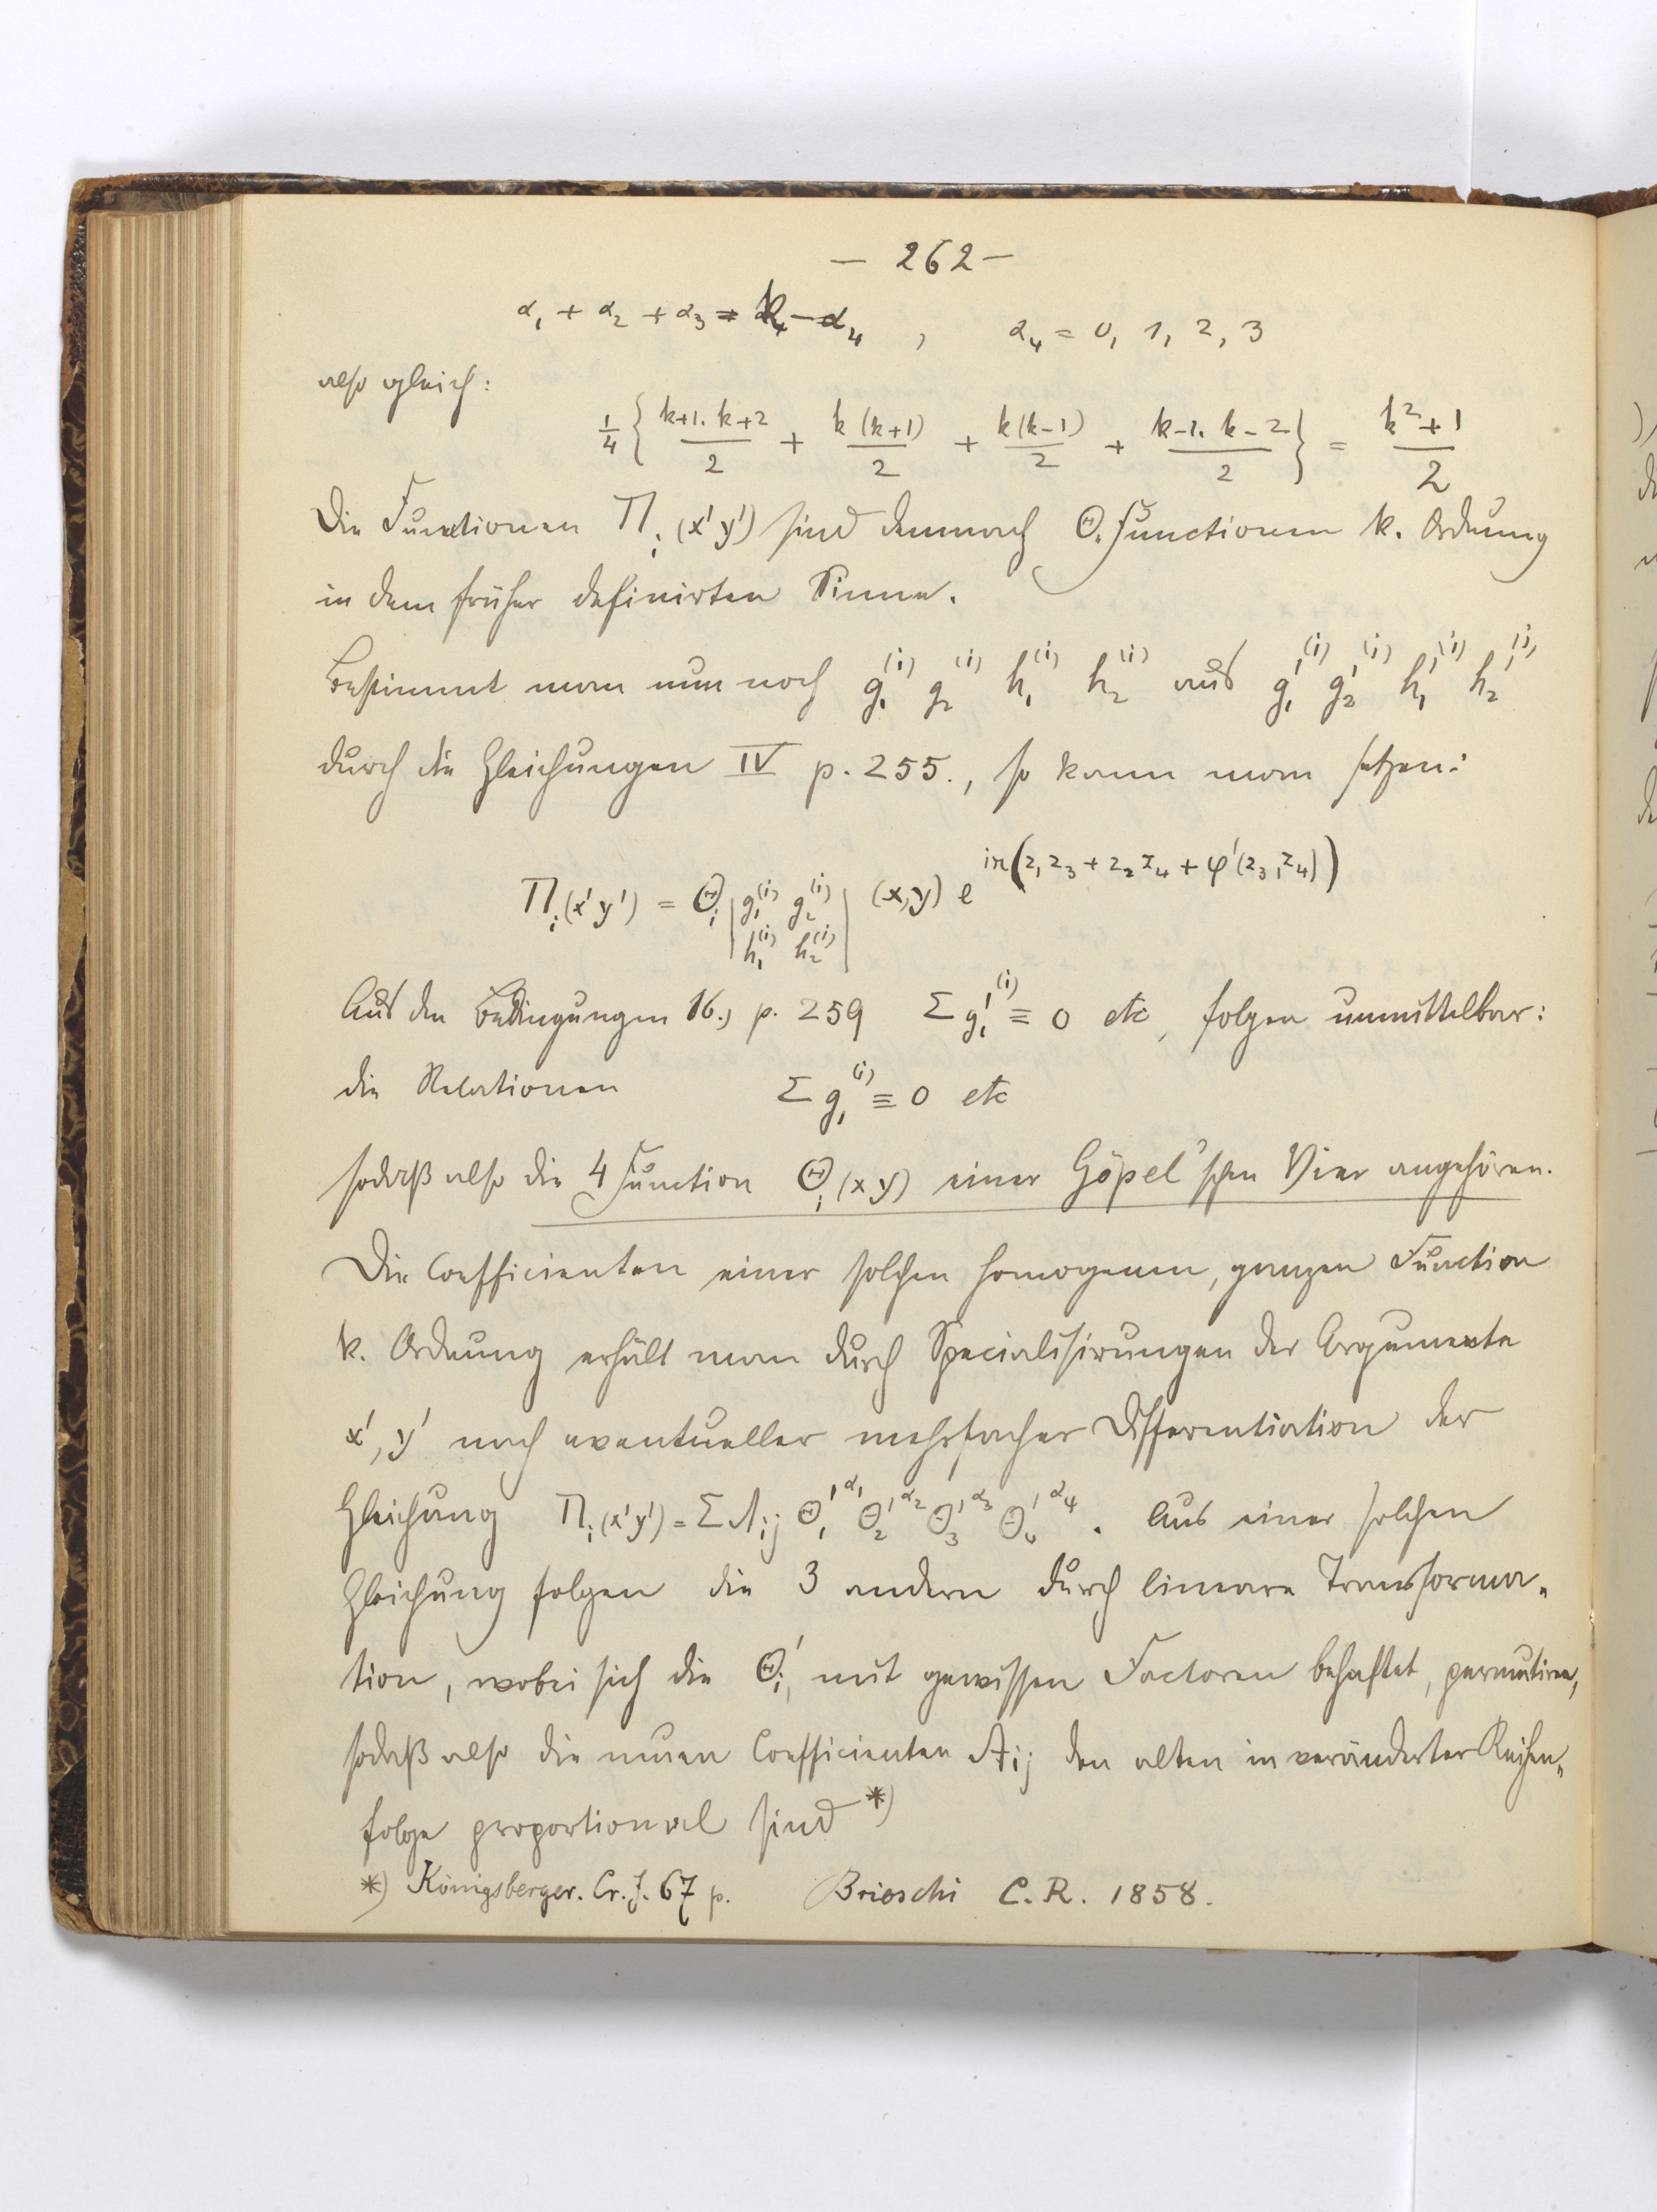 — 262 —
α₁ + α₂ + α₃ = k − α₄ , α₄ = 0, 1, 2, 3
also gleich:
1/4 { (k+1. k+2)/2 + k(k+1)/2 + k(k−1)/2 + (k−1. k−2)/2 } = (k²+1)/2
Die Functionen Πᵢ(x'y') sind demnach Θ. Functionen k. Ordnung
in dem früher definirten Sinne.
Bestimmt man nun noch g₁⁽ⁱ⁾ g₂⁽ⁱ⁾ h₁⁽ⁱ⁾ h₂⁽ⁱ⁾ aus g₁'⁽ⁱ⁾ g₂'⁽ⁱ⁾ h₁'⁽ⁱ⁾ h₂'⁽ⁱ⁾
durch die Gleichungen IV p. 255., so kann man setzen:
Πᵢ(x'y') = Θᵢ |g₁⁽ⁱ⁾ g₂⁽ⁱ⁾ h₁⁽ⁱ⁾ h₂⁽ⁱ⁾| (x,y) e^{iπ(z₁z₃ + z₂z₄ + φ'(z₃,z₄))}
Aus den Bedingungen 16.) p. 259 Σ g₁'⁽ⁱ⁾ ≡ 0 etc, folgen unmittelbar:
die Relationen Σ g₁⁽ⁱ⁾ ≡ 0 etc
sodaß also die 4 Function Θᵢ(xy) einer Göpel'schen Vier angehören.
Die Coefficienten einer solchen homogenen, ganzen Function
k. Ordnung erhält man durch Specialisirungen der Argumente
x', y' nach eventueller mehrfacher Differentiation der
Gleichung Πᵢ(x'y') = Σ Aᵢⱼ Θ₁'^α₁ Θ₂'^α₂ Θ₃'^α₃ Θ₄'^α₄. Aus einer solchen
Gleichung folgen die 3 andern durch lineare Transforma-
tion, wobei sich die Θᵢ', mit gewissen Factoren behaftet, permutiren,
sodaß also die neuen Coefficienten Aᵢⱼ den alten in veränderter Reihen-
folge proportional sind *)
*) Königsberger. Cr. J. 67 p. Brioschi C. R. 1858.